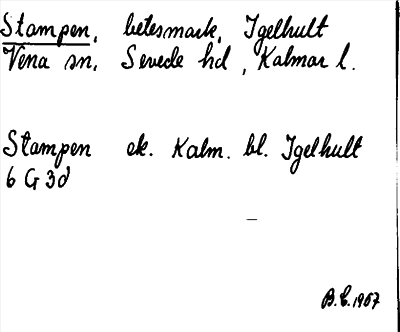 Stampen, betesmark, Igelhult
Vena sn, Sevede hd, Kalmar l.
Stampen ek. Kalm. bl. Igelhult
6 G 3d
B.E. 1967